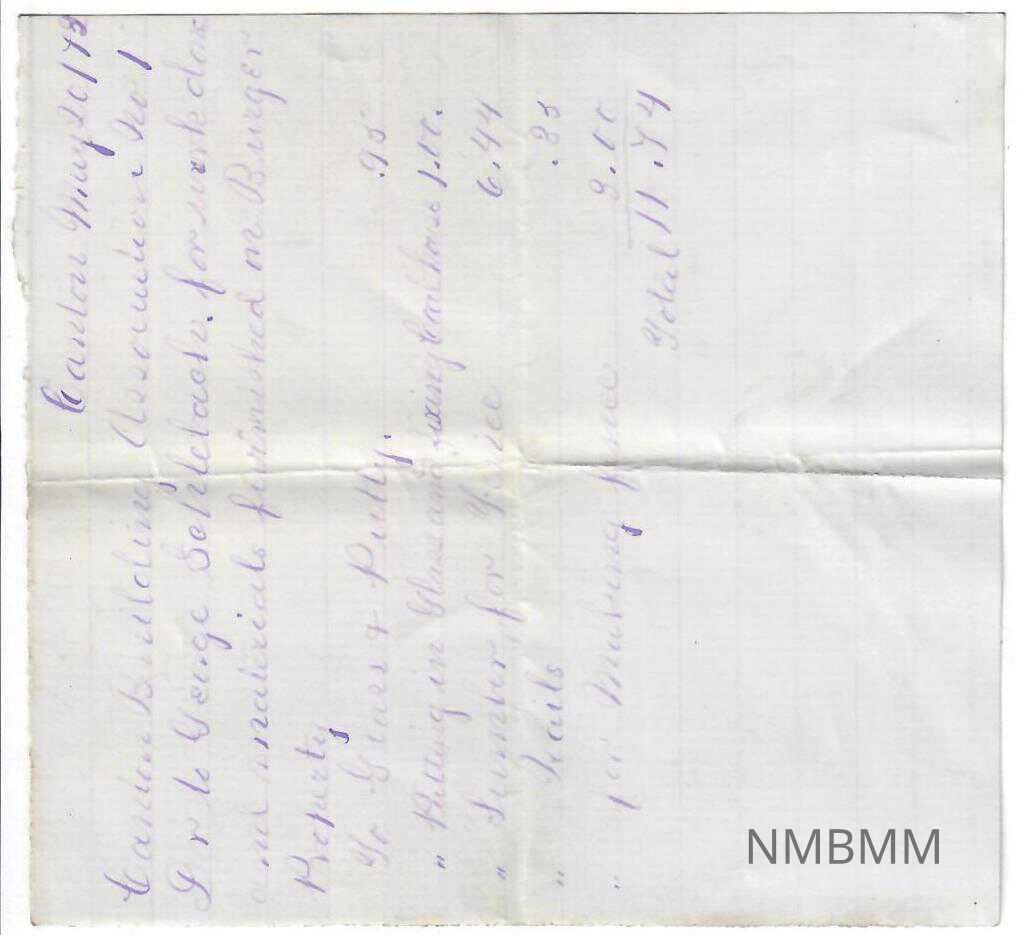 Canton May 20/
Canton Building Association No 1
Dr to George for work don
and materials furnished on Burger
Property
To Glass & Putty. .95
" Putting in Glass and fixing 1.00.
" Lumber for Fence 6.44
" Nails .35
" for Making fence 3.00
Total 11.74
NMBMM